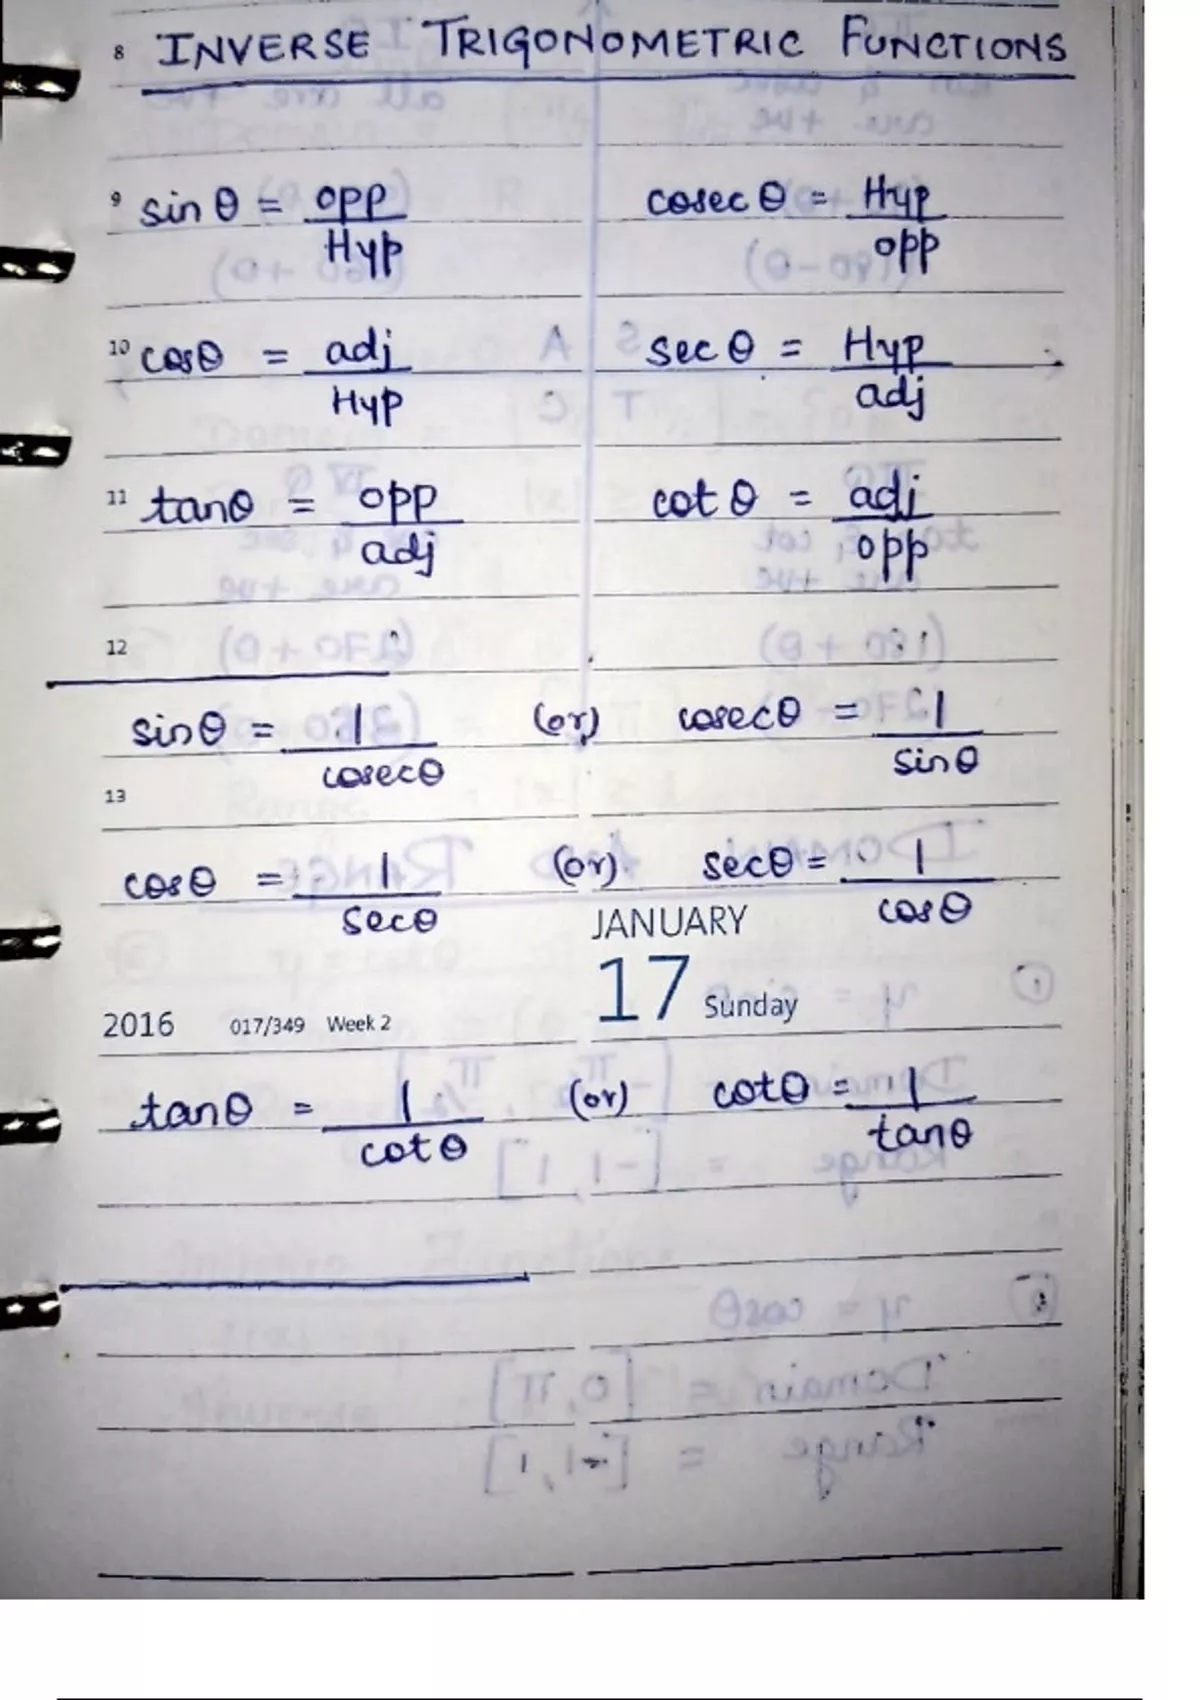 8 INVERSE TRIGONOMETRIC FUNCTIONS
9 sin θ = opp/Hyp cosec θ = Hyp/opp
10 cosθ = adj/Hyp sec θ = Hyp/adj
11 tanθ = opp/adj cot θ = adj/opp
12
sinθ = 1/cosecθ (or) cosecθ = 1/sinθ
13
cosθ = 1/secθ (or) secθ = 1/cosθ
JANUARY
2016 017/349 Week 2 17 Sunday
tanθ = 1/cotθ (or) cotθ = 1/tanθ